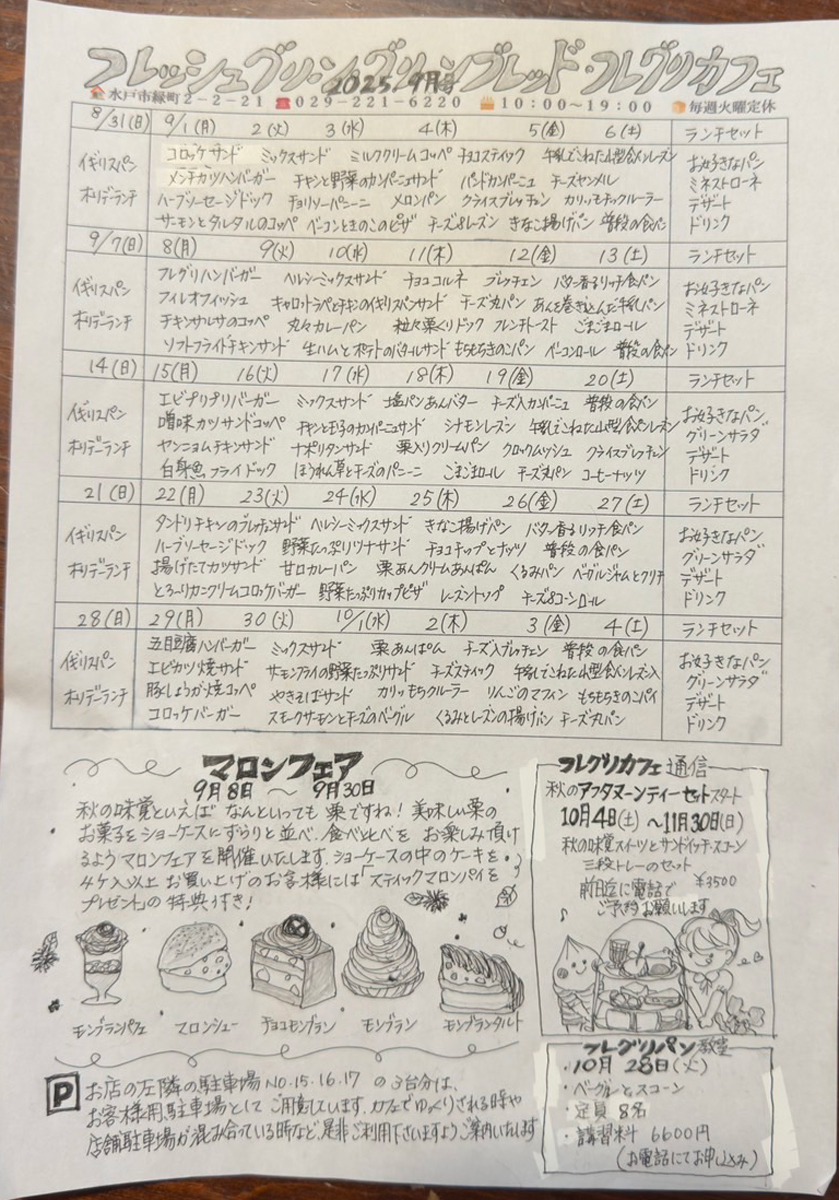 フレッシュグリーングリーンブレッド・フレグリカフェ
2025 9月号
水戸市緑町2-2-21 029-221-6220 10:00~19:00 毎週火曜定休
8/31(日) 9/1(月) 2(火) 3(水) 4(木) 5(金) 6(土) ランチセット
イギリスパン コロッケサンド ミックスサンド ミルククリームコッペ チョコスティック 牛乳でこねた山型食パンレーズン お好きなパン
メンチカツハンバーガー チキンと野菜のカンパーニュサンド パンドカンパーニュ チーズヤンメル ミネストローネ
ホリデーランチ ハーブソーセージドック チョリソーパニーニ メロンパン クライスブレッチェン カリッモチックルーラー デザート
サーモンとタルタルのコッペ ベーコンときのこのピザ チーズ&レーズン きなこ揚げパン 普段の食パン ドリンク
9/7(日) 8(月) 9(火) 10(水) 11(木) 12(金) 13(土) ランチセット
イギリスパン フレグリハンバーガー ヘルシーミックスサンド チョココルネ ブレッチェン バター香るリッチ食パン お好きなパン
フィレオフィッシュ キャロットラペとチキンのイギリスパンサンド チーズ丸パン あんを巻き込んだ牛乳パン ミネストローネ
ホリデーランチ チキンサルサのコッペ 丸々カレーパン 粒々栗くりドック フレンチトースト ごまごまロール デザート
ソフトフライドチキンサンド 生ハムとポテトのバタールサンド もちもちきのこパン ベーコンロール 普段の食パン ドリンク
14(日) 15(月) 16(火) 17(水) 18(木) 19(金) 20(土) ランチセット
イギリスパン エビプリプリバーガー ミックスサンド 塩パンあんバター チーズ入カンパーニュ 普段の食パン お好きなパン
噌味カツサンドコッペ チキンと玉子のカンパーニュサンド シナモンレーズン 牛乳でこねた山型食パンレーズン グリーンサラダ
ホリデーランチ ヤンニョムチキンサンド ナポリタンサンド 栗入りクリームパン クロックムッシュ クライスブレッチェン デザート
白身魚フライドック ほうれん草とチーズのパニーニ ごまごまロール チーズ丸パン コーヒーナッツ ドリンク
21(日) 22(月) 23(火) 24(水) 25(木) 26(金) 27(土) ランチセット
イギリスパン タンドリチキンのブレッチェンサンド ヘルシーミックスサンド きなこ揚げパン バター香るリッチ食パン お好きなパン
ハーブソーセージドック 野菜たっぷりツナサンド チョコチップとナッツ 普段の食パン グリーンサラダ
ホリデーランチ 揚げたてカツサンド 甘口カレーパン 栗あんクリームあんぱん くるみパン ベーグルジャムとクリチ デザート
とろ~りカニクリームコロッケバーガー 野菜たっぷりカップピザ レーズントップ チーズ&コーンロール ドリンク
28(日) 29(月) 30(火) 10/1(水) 2(木) 3(金) 4(土) ランチセット
イギリスパン 五目豆腐ハンバーガー ミックスサンド 栗あんぱん チーズ入ブレッチェン 普段の食パン お好きなパン
エビカツ焼サンド サーモンフライの野菜たっぷりサンド チーズスティック 牛乳でこねた山型食パンレーズン入 グリーンサラダ
ホリデーランチ 豚しょうが焼コッペ やきそばサンド カリッもちクルーラー りんごのマフィン もちもちきのこパイ デザート
コロッケバーガー スモークサーモンとチーズのベーグル くるみとレーズンの揚げパン チーズ丸パン ドリンク
マロンフェア
9月8日 ~ 9月30日
秋の味覚といえば なんといっても 栗ですね! 美味しい栗の
お菓子をショーケースにずらりと並べ、食べ比べを お楽しみ頂け
るようマロンフェアを開催いたします。ショーケースの中のケーキを
4ケ入以上 お買い上げのお客様には「スティックマロンパイを
プレゼント」の 特典つき!
モンブランパフェ マロンシュー チョコモンブラン モンブラン モンブランタルト
フレグリカフェ通信
秋のアフタヌーンティーセットスタート
10月4日(土) ~11月30日(日)
秋の味覚スイーツとサンドイッチ・スコーン
三段トレーのセット
¥3500
前日迄に電話で
ご予約お願いします
P お店の左隣の駐車場 NO.15.16.17 の3台分は、
お客様用駐車場として ご用意しています。カフェでゆっくりされる時や
店舗駐車場が混み合っている時など、是非ご利用下さいますようご案内いたします
フレグリパン教室
・10月28日(火)
・ベーグルとスコーン
・定員 8名
・講習料 6600円
(お電話にてお申し込み)